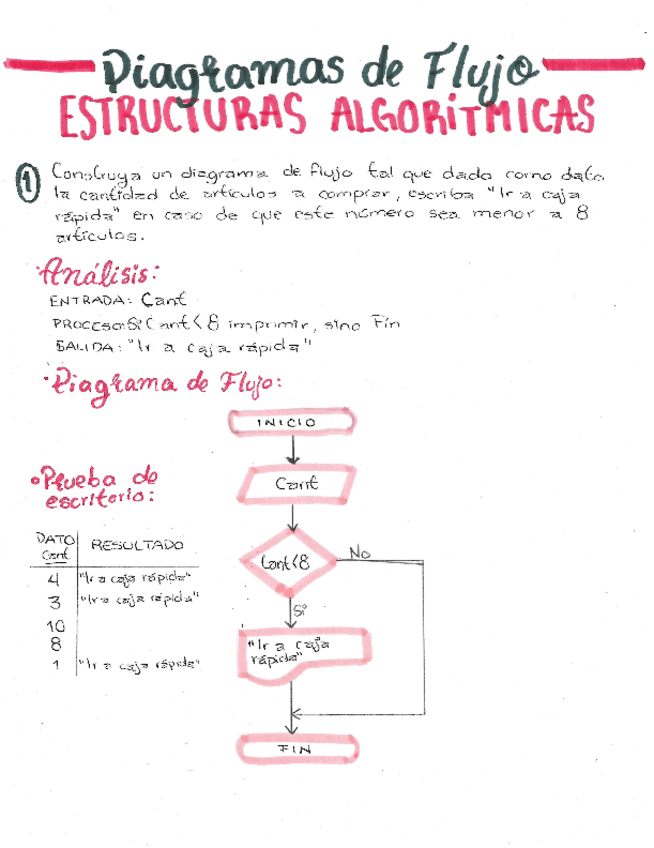 Diagramas de Flujo
ESTRUCTURAS ALGORÍTMICAS
1 Construya un diagrama de flujo tal que dado como dato
la cantidad de artículos a comprar, escriba "Ir a caja
rápida" en caso de que este número sea menor a 8
artículos.
·Análisis:
ENTRADA: Cant
PROCESO: Si Cant<8 imprimir, sino Fin
SALIDA: "Ir a caja rápida"
·Diagrama de Flujo:
INICIO
Cant
Cant<8
No
Si
"Ir a caja
rápida"
FIN
•Prueba de
escritorio:
DATO RESULTADO
Cant
4 "Ir a caja rápida"
3 "Ir a caja rápida"
10
8
1 "Ir a caja rápida"